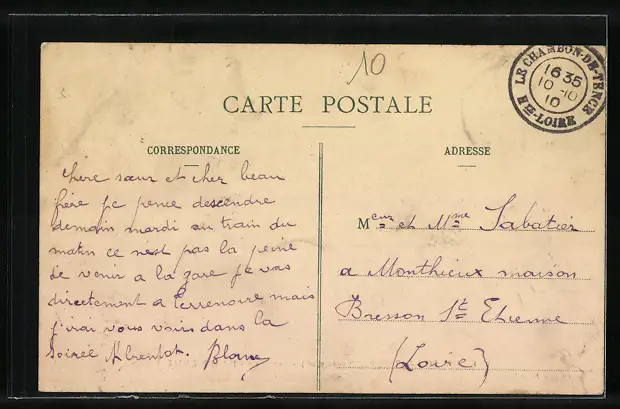 10
LE CHAMBON-DE-TENCE
16 35
10-10
10
HTE-LOIRE
CARTE POSTALE
CORRESPONDANCE
ADRESSE
Chère sœur et cher beau
frère je pence descendre
demain mardi au train du
matin ce n'est pas la peine
de venir a la gare je vas
directement a Terrenoire mais
j'irai vous voir dans la
soirée A brentot. Blanc
Meur et Mme Sabatier
a Monthieux maison
Bresson St Etienne
(Loire)